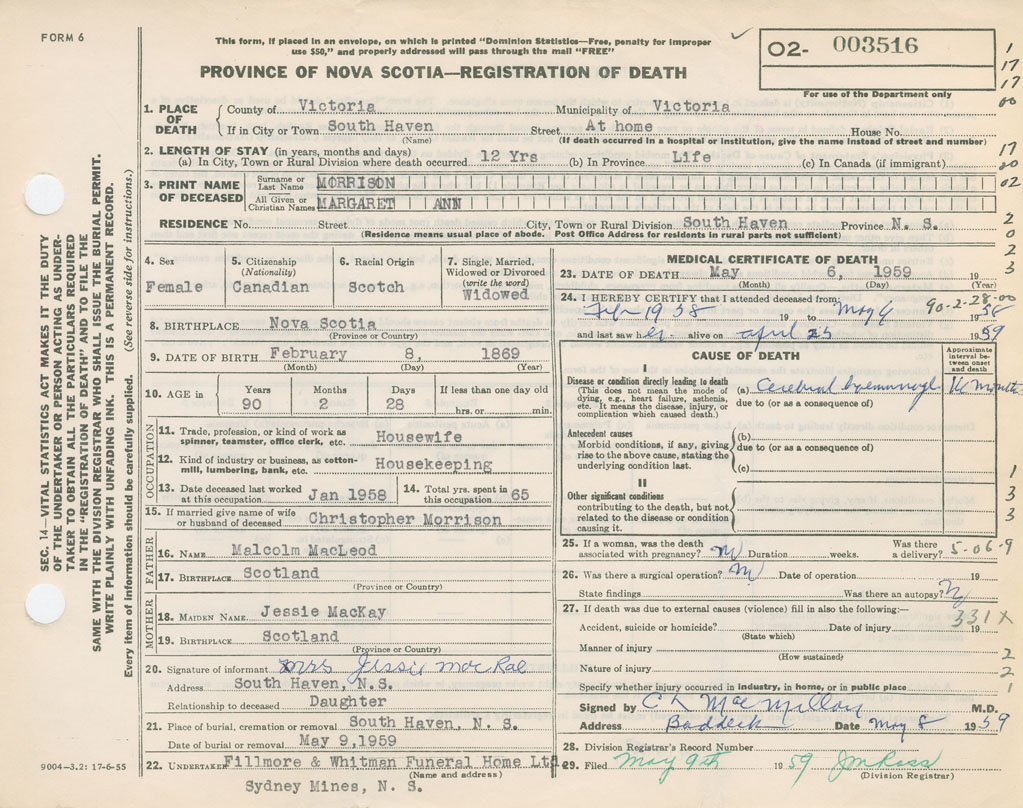 FORM 6
This form, if placed in an envelope, on which is printed "Dominion Statistics—Free, penalty for improper
use $50," and properly addressed will pass through the mail "FREE"
PROVINCE OF NOVA SCOTIA—REGISTRATION OF DEATH
02- 003516
For use of the Department only
1
17
17
00
17
20
02
2
0
2
3
SEC. 14—VITAL STATISTICS ACT MAKES IT THE DUTY
OF THE UNDERTAKER OR PERSON ACTING AS UNDER-
TAKER TO OBTAIN ALL THE PARTICULARS REQUIRED
IN THE "REGISTRATION OF DEATH" AND TO FILE THE
SAME WITH THE DIVISION REGISTRAR WHO SHALL ISSUE THE BURIAL PERMIT.
WRITE PLAINLY WITH UNFADING INK. THIS IS A PERMANENT RECORD.
Every item of information should be carefully supplied. (See reverse side for instructions.)
1. PLACE OF DEATH
County of Victoria Municipality of Victoria
If in City or Town South Haven Street At home House No.
(Name) (If death occurred in a hospital or institution, give the name instead of street and number)
2. LENGTH OF STAY (in years, months and days)
(a) In City, Town or Rural Division where death occurred 12 Yrs (b) In Province Life (c) In Canada (if immigrant)
3. PRINT NAME OF DECEASED
Surname or Last Name MORRISON
All Given or Christian Names MARGARET ANN
RESIDENCE No. Street City, Town or Rural Division South Haven Province N. S.
(Residence means usual place of abode. Post Office Address for residents in rural parts not sufficient)
4. Sex
Female
5. Citizenship (Nationality)
Canadian
6. Racial Origin
Scotch
7. Single, Married, Widowed or Divorced (write the word)
Widowed
8. BIRTHPLACE Nova Scotia
(Province or Country)
9. DATE OF BIRTH February 8, 1869
(Month) (Day) (Year)
10. AGE in Years Months Days If less than one day old
90 2 28 hrs. or min.
OCCUPATION
11. Trade, profession, or kind of work as
spinner, teamster, office clerk, etc. Housewife
12. Kind of industry or business, as cotton-
mill, lumbering, bank, etc. Housekeeping
13. Date deceased last worked
at this occupation Jan 1958
14. Total yrs. spent in
this occupation 65
15. If married give name of wife
or husband of deceased Christopher Morrison
FATHER
16. NAME Malcolm MacLeod
17. BIRTHPLACE Scotland
(Province or Country)
MOTHER
18. MAIDEN NAME Jessie MacKay
19. BIRTHPLACE Scotland
(Province or Country)
20. Signature of informant Mrs Jessie MacRae
Address South Haven, N.S.
Relationship to deceased Daughter
21. Place of burial, cremation or removal South Haven, N. S.
Date of burial or removal May 9,1959
22. UNDERTAKER Fillmore & Whitman Funeral Home Ltd.
(Name and address)
Sydney Mines, N. S.
9004-3.2: 17-6-55
MEDICAL CERTIFICATE OF DEATH
23. DATE OF DEATH May 6, 1959 19
(Month) (Day) (Year)
24. I HEREBY CERTIFY that I attended deceased from: 90-2-28-00
Feb 1938 19 to May 6 1958
and last saw her alive on april 25 1959
CAUSE OF DEATH
Approximate interval between onset and death
I
Disease or condition directly leading to death
(This does not mean the mode of
dying, e.g., heart failure, asthenia,
etc. It means the disease, injury, or
complication which caused death.)
(a) Cerebral haemorrhage
due to (or as a consequence of)
Antecedent causes
Morbid conditions, if any, giving
rise to the above cause, stating the
underlying condition last.
(b)
due to (or as a consequence of)
(c)
II
Other significant conditions
contributing to the death, but not
related to the disease or condition
causing it.
1
3
3
25. If a woman, was the death
associated with pregnancy? No Duration weeks. Was there a delivery? 5-06-9
26. Was there a surgical operation? No Date of operation 19
State findings Was there an autopsy? No
27. If death was due to external causes (violence) fill in also the following:—
331X
Accident, suicide or homicide? Date of injury 19
(State which)
Manner of injury 2
(How sustained)
Nature of injury 2
Specify whether injury occurred in industry, in home, or in public place 1
Signed by C L MacMillan M.D.
Address Baddeck Date May 8 1959
28. Division Registrar's Record Number
29. Filed May 9th 1959 J M Ross
(Division Registrar)